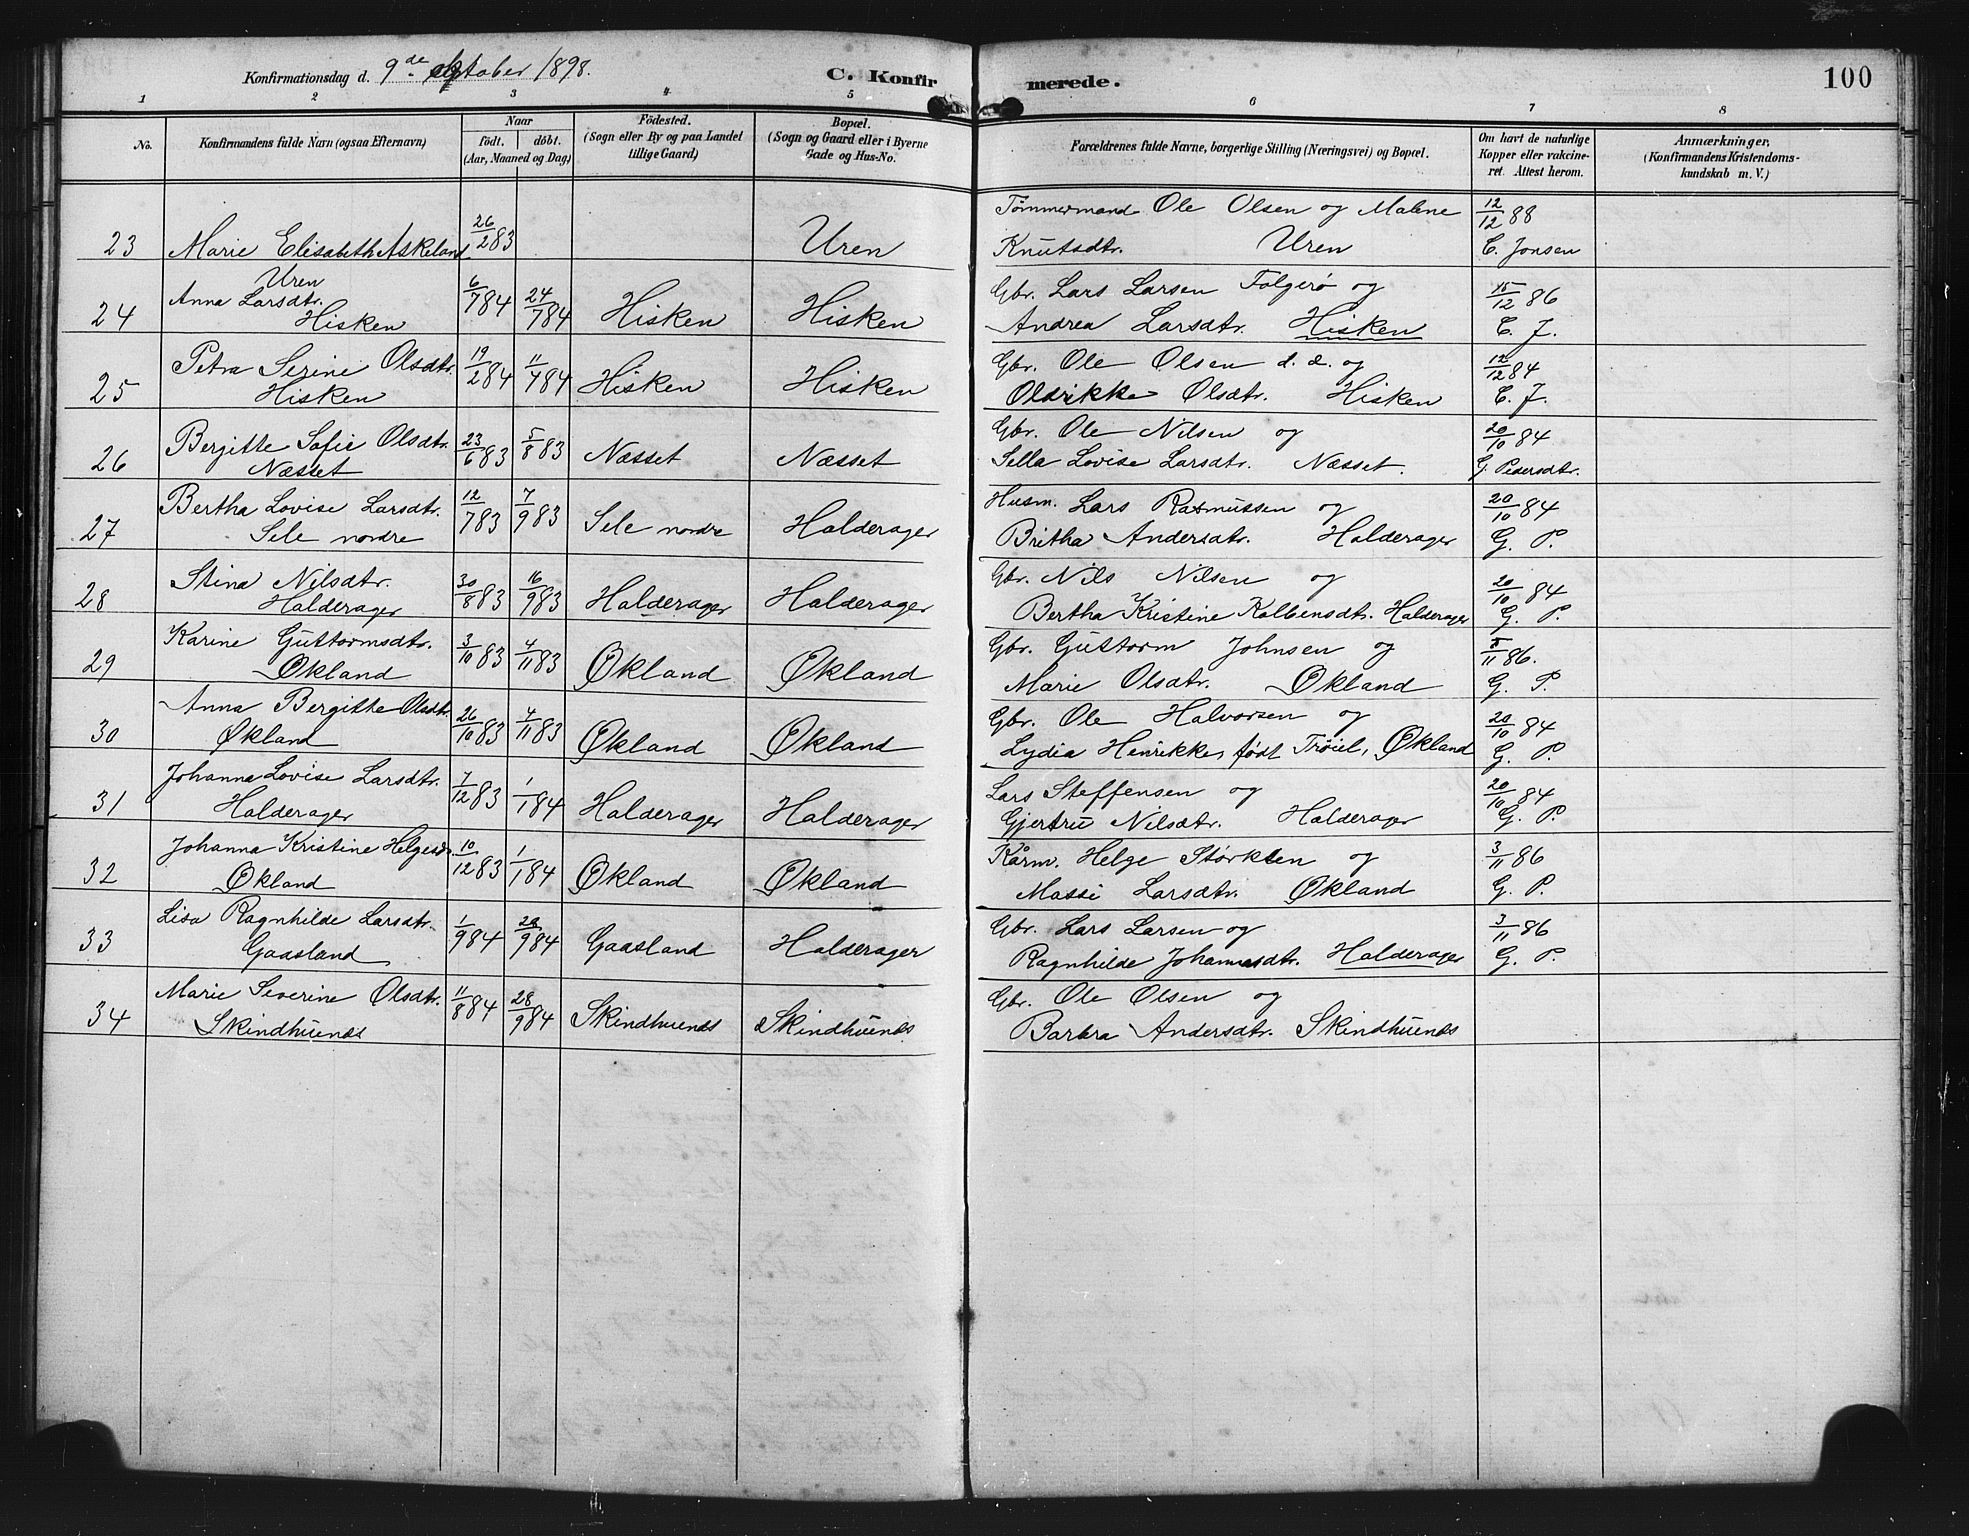 Konfirmationsdag d. 9de October 1898.
C. Konfirmerede.
100
1 2 3 4 5 6 7 8
No.
Konfirmandens fulde Navn (ogsaa Efternavn)
Naar
födt. döbt.
(Aar, Maaned og Dag)
Födested.
(Sogn eller By og paa Landet
tillige Gaard)
Bopæl.
(Sogn og Gaard eller i Byerne
Gade og Hus-No.
Forældrenes fulde Navne, borgerlige Stilling (Næringsvei) og Bopæl.
Om havt de naturlige
Kopper eller vakcine-
ret. Attest herom.
Anmærkninger.
(Konfirmandens Kristendoms-
kundskab m. V.)
Tømmermand Ole Olsen og Malene 12/12 88
23 Marie Elisabeth Askeland 26/2 83 Uren Knutsdtr. Uren C. Jonsen
Uren
24 Anna Larsdtr. 6/7 84 24/7 84 Hisken Hisken Gbr. Lars Larsen Folgerø og 15/12 86
Hisken Andrea Larsdtr. Hisken C. J.
25 Petra Serine Olsdtr. 19/2 84 11/4 84 Hisken Hisken Gbr. Ole Olsen d. d. og 12/12 84
Hisken Olsrikke Olsdtr. Hisken C. J.
26 Bergitte Sofie Olsdtr. 23/6 83 5/8 83 Næsset Næsset Gbr. Ole Nilsen og 20/10 84
Næsset Sella Lovise Larsdtr. Næsset. G. Pedersdtr.
27 Bertha Lovise Larsdtr. 12/7 83 7/9 83 Sele nordre Halderager Husm. Lars Rasmussen og 20/10 84
Sele nordre Britha Andersdtr. Halderager G. P.
28 Stina Nilsdtr. 30/8 83 16/9 83 Halderager Halderager Gbr. Nils Nilsen og 20/10 84
Halderager Bertha Kristine Kolbensdtr. Halderager G. P.
29 Karine Guttormsdtr. 3/10 83 4/11 83 Økland Økland Gbr. Guttorm Johnsen og 5/11 86.
Økland Marie Olsdtr. Økland G. P.
30 Anna Bergitte Olsdtr. 26/10 83 4/11 83 Økland Økland Gbr. Ole Halvorsen og 20/10 84
Økland Lydia Henrikke, født Trøiel, Økland G. P.
31 Johanna Lovise Larsdtr. 7/12 83 1/1 84 Halderager Halderager Lars Steffensen og 20/10 84
Halderager Gjertru Nilsdtr. Halderager G. P.
32 Johanna Kristine Helgesd. 10/12 83 1/1 84 Økland Økland Kårm. Helge Størksen og 3/11 86
Økland Massi Larsdtr. Økland G. P.
33 Lisa Ragnhilde Larsdtr. 1/9 84 28/9 84 Gaasland Halderager Gbr. Lars Larsen og 3/11 86
Gaasland Ragnhilde Johannesdtr. Halderager G. P.
34 Marie Severine Olsdtr. 11/8 84 28/9 84 Skindhuenæs Skindhuenæs Gbr. Ole Olsen og
Skindhuenæs Barbra Andersdtr. Skindhuenæs